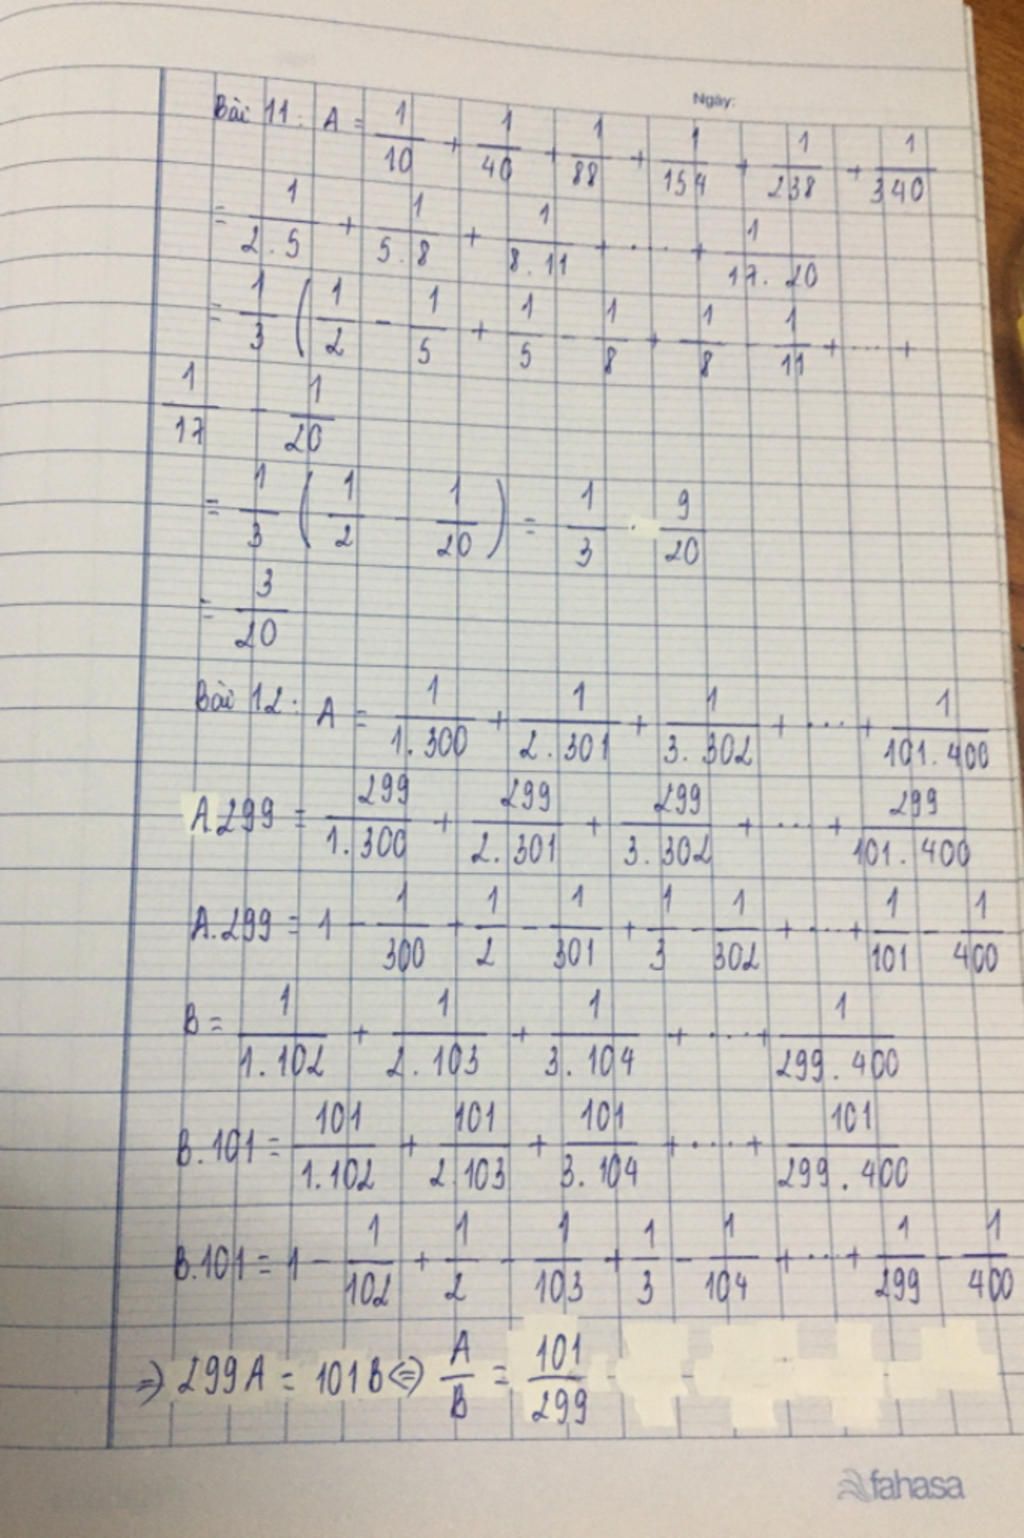 Ngày:
Bài 11: A = 1/10 + 1/40 + 1/88 + 1/154 + 1/238 + 1/340
= 1/2.5 + 1/5.8 + 1/8.11 + .... + 1/17.20
= 1/3 ( 1/2 - 1/5 + 1/5 - 1/8 + 1/8 - 1/11 + .... +
1/17 - 1/20
= 1/3 ( 1/2 - 1/20 ) = 1/3 . 9/20
= 3/20
Bài 12: A = 1/1.300 + 1/2.301 + 1/3.302 + .... + 1/101.400
A.299 = 299/1.300 + 299/2.301 + 299/3.302 + .... + 299/101.400
A.299 = 1 - 1/300 + 1/2 - 1/301 + 1/3 - 1/302 + .... + 1/101 - 1/400
B = 1/1.102 + 1/2.103 + 1/3.104 + .... + 1/299.400
B.101 = 101/1.102 + 101/2.103 + 101/3.104 + .... + 101/299.400
B.101 = 1 - 1/102 + 1/2 - 1/103 + 1/3 - 1/104 + .... + 1/299 - 1/400
=> 299A = 101B <=> A/B = 101/299
fahasa